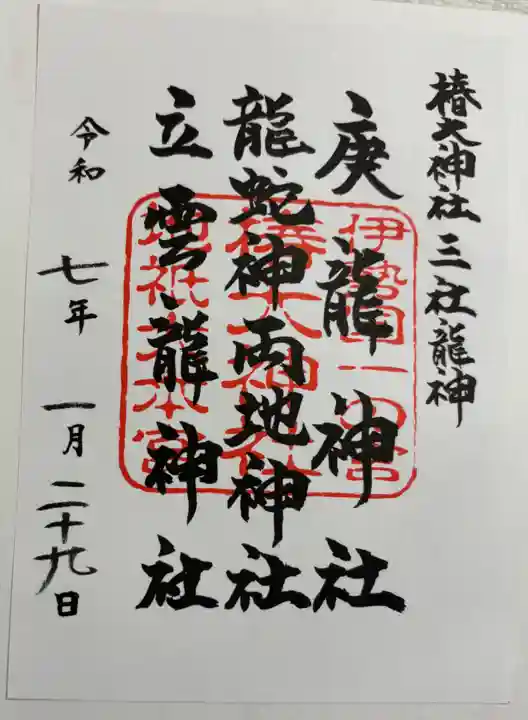 椿大神社 三社龍神
庚龍神社
龍蛇神両地神社
立雲龍神社
伊勢国一の宮
椿大神社
地祇大本宮
令和 七年 一月 二十九日